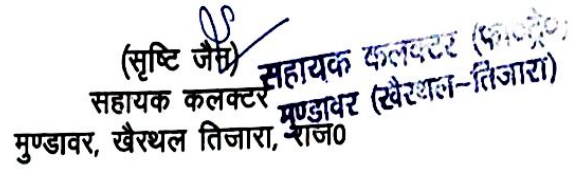 (सृष्टि जैन)
सहायक कलक्टर
मुण्डावर, खैरथल तिजारा, राज0
सहायक कलक्टर (फा०ट्रे०)
मुण्डावर (खैरथल-तिजारा)